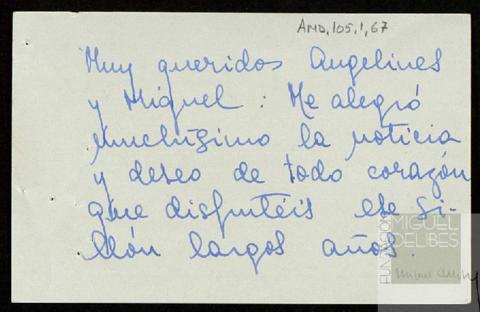 AMD, 105, 1, 67
Muy queridos Angelines
y Miguel: Me alegró
muchísimo la noticia
y deseo de todo corazón
que disfrutéis ese si-
llón largos años.
FUNDACIÓN
MIGUEL
DELIBES